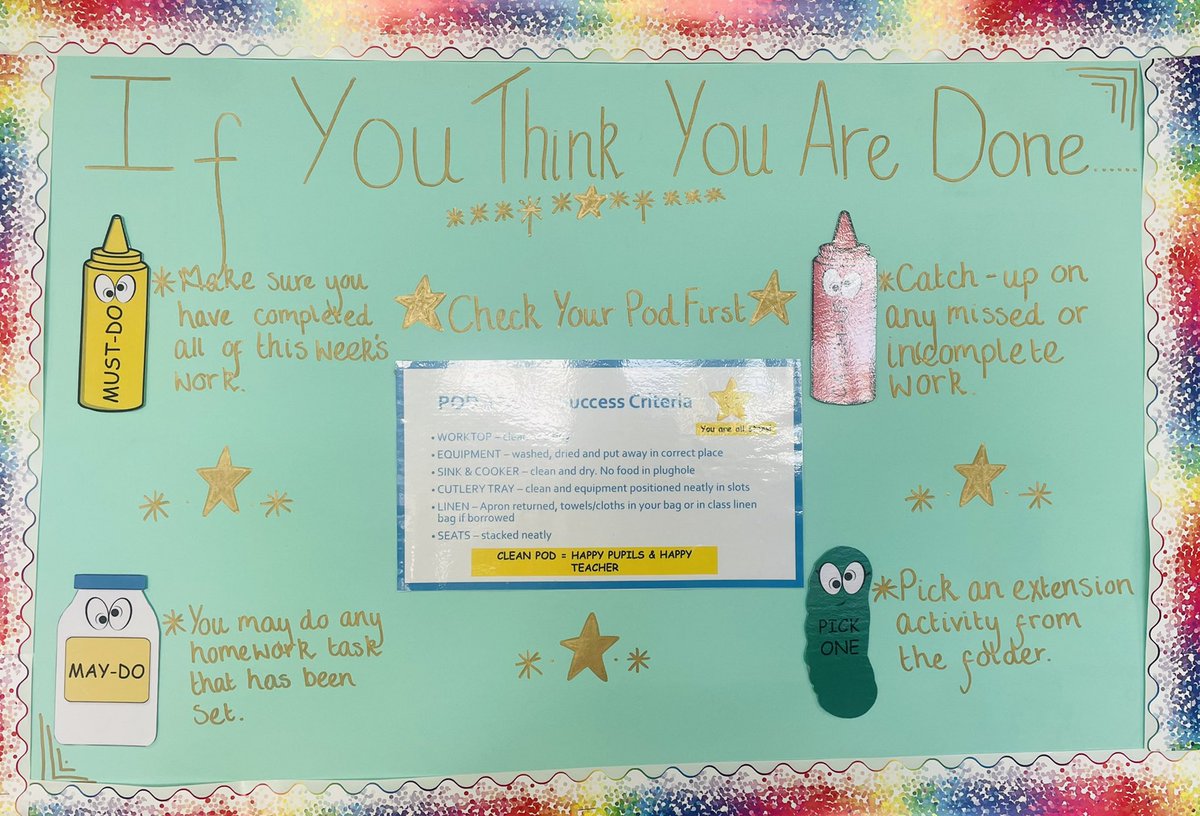 If You Think You Are Done......
MUST-DO
*Make sure you
have completed
all of this week's
work.
Check Your Pod First
*Catch-up on
any missed or
incomplete
work.
POD Success Criteria
You are all stars!
• WORKTOP –
• EQUIPMENT – washed, dried and put away in correct place
• SINK & COOKER – clean and dry. No food in plughole
• CUTLERY TRAY – clean and equipment positioned neatly in slots
• LINEN – Apron returned, towels/cloths in your bag or in class linen
bag if borrowed
• SEATS – stacked neatly
CLEAN POD = HAPPY PUPILS & HAPPY
TEACHER
MAY-DO
*You may do any
homework task
that has been
set.
PICK
ONE
*Pick an extension
activity from
the folder.